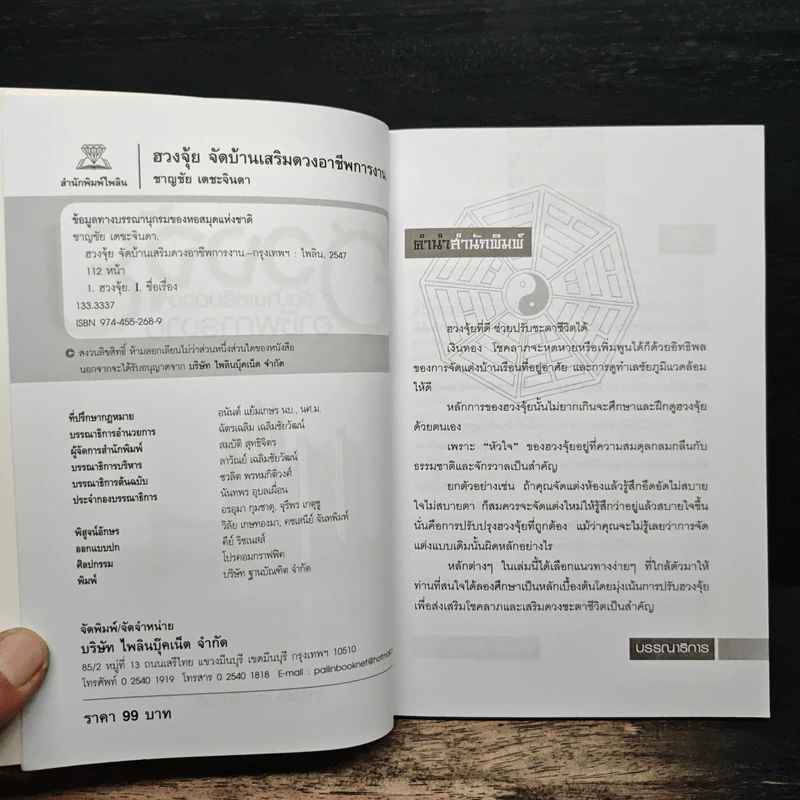 สำนักพิมพ์ไพลิน
ฮวงจุ้ย จัดบ้านเสริมดวงอาชีพการงาน
ชาญชัย เตชะจินดา
ข้อมูลทางบรรณานุกรมของหอสมุดแห่งชาติ
ชาญชัย เตชะจินดา.
ฮวงจุ้ย จัดบ้านเสริมดวงอาชีพการงาน.–กรุงเทพฯ : ไพลิน, 2547
112 หน้า
1. ฮวงจุ้ย. I. ชื่อเรื่อง
133.3337
ISBN 974-455-268-9
© สงวนลิขสิทธิ์ ห้ามลอกเลียนไม่ว่าส่วนหนึ่งส่วนใดของหนังสือ
นอกจากจะได้รับอนุญาตจาก บริษัท ไพลินบุ๊คเน็ต จำกัด
ที่ปรึกษากฎหมาย อนันต์ แย้มเกษร นบ., นศ.ม.
บรรณาธิการอำนวยการ ฉัตรเฉลิม เฉลิมชัยวัฒน์
ผู้จัดการสำนักพิมพ์ สมบัติ สุทธิจิตร
บรรณาธิการบริหาร ลาวัณย์ เฉลิมชัยวัฒน์
บรรณาธิการต้นฉบับ ชวลิต พรหมกิติวงศ์
ประจำกองบรรณาธิการ นันทพร อุบลเผื่อน
อรอุมา กุมชาตุ, จุรีพร เกตุชู
พิสูจน์อักษร วิลัย เกษทองมา, คชเสนีย์ จันทพิมพ์
ออกแบบปก คีย์ ริชเนสส์
ศิลปกรรม โปรคอมกราฟฟิค
พิมพ์ บริษัท ฐานบัณฑิต จำกัด
จัดพิมพ์/จัดจำหน่าย
บริษัท ไพลินบุ๊คเน็ต จำกัด
85/2 หมู่ที่ 13 ถนนเสรีไทย แขวงมีนบุรี เขตมีนบุรี กรุงเทพฯ 10510
โทรศัพท์ 0 2540 1919 โทรสาร 0 2540 1818 E-mail : pailinbooknet@hotmail.
ราคา 99 บาท
คำนำสำนักพิมพ์
ฮวงจุ้ยที่ดี ช่วยปรับชะตาชีวิตได้
เงินทอง โชคลาภจะหดหายหรือเพิ่มพูนได้ก็ด้วยอิทธิพล
ของการจัดแต่งบ้านเรือนที่อยู่อาศัย และการดูทำเลชัยภูมิแวดล้อม
ให้ดี
หลักการของฮวงจุ้ยนั้นไม่ยากเกินจะศึกษาและฝึกดูฮวงจุ้ย
ด้วยตนเอง
เพราะ “หัวใจ” ของฮวงจุ้ยอยู่ที่ความสมดุลกลมกลืนกับ
ธรรมชาติและจักรวาลเป็นสำคัญ
ยกตัวอย่างเช่น ถ้าคุณจัดแต่งห้องแล้วรู้สึกอึดอัดไม่สบาย
ใจไม่สบายตา ก็สมควรจะจัดแต่งใหม่ให้รู้สึกว่าอยู่แล้วสบายใจขึ้น
นั่นคือการปรับปรุงฮวงจุ้ยที่ถูกต้อง แม้ว่าคุณจะไม่รู้เลยว่าการจัด
แต่งแบบเดิมนั้นผิดหลักอย่างไร
หลักต่างๆ ในเล่มนี้ได้เลือกแนวทางง่ายๆ ที่ใกล้ตัวมาให้
ท่านที่สนใจได้ลองศึกษาเป็นหลักเบื้องต้นโดยมุ่งเน้นการปรับฮวงจุ้ย
เพื่อส่งเสริมโชคลาภและเสริมดวงชะตาชีวิตเป็นสำคัญ
บรรณาธิการ